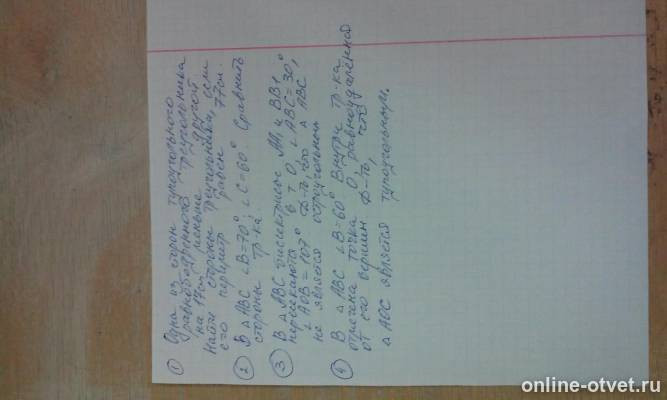 ① Одна из сторон тупоугольного
равнобедренного треугольника
на 17см меньше другой
Найти стороны треугольника, если
его периметр равен 77см.
② В △ABC ∠B=70°, ∠C=60° Сравнить
стороны тр-ка.
③ В △ABC биссектрисы AA1 и BB1
пересекаются в т O, ∠ABC=30°,
∠AOB=107° Д-ть, что △ABC
не является остроугольным
④ В △ABC ∠B=60° Внутри тр-ка
отмечена точка O, равноудалённая
от его вершин Д-ть, что
△AOC является тупоугольным.
online-otvet.ru